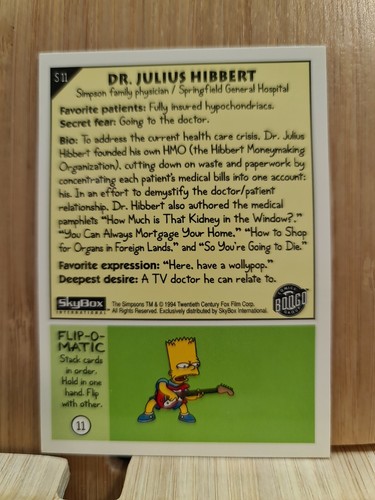 S 11
DR. JULIUS HIBBERT
Simpson family physician / Springfield General Hospital
Favorite patients: Fully insured hypochondriacs.
Secret fear: Going to the doctor.
Bio: To address the current health care crisis, Dr. Julius
Hibbert founded his own HMO (the Hibbert Moneymaking
Organization), cutting down on waste and paperwork by
concentrating each patient's medical bills into one account:
his. In an effort to demystify the doctor/patient
relationship, Dr. Hibbert also authored the medical
pamphlets "How Much is That Kidney in the Window?,"
"You Can Always Mortgage Your Home," "How to Shop
for Organs in Foreign Lands," and "So You're Going to Die."
Favorite expression: "Here, have a wollypop."
Deepest desire: A TV doctor he can relate to.
SKYBOX
INTERNATIONAL
The Simpsons TM & © 1994 Twentieth Century Fox Film Corp.
All Rights Reserved. Exclusively distributed by SkyBox International.
BONGO
FLIP-O-
MATIC
Stack cards
in order.
Hold in one
hand. Flip
with other.
11